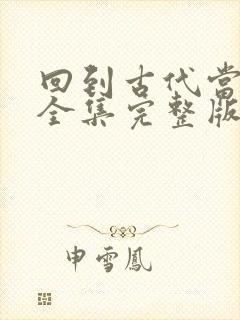 回到古代当
全集完整版
申雪鳳